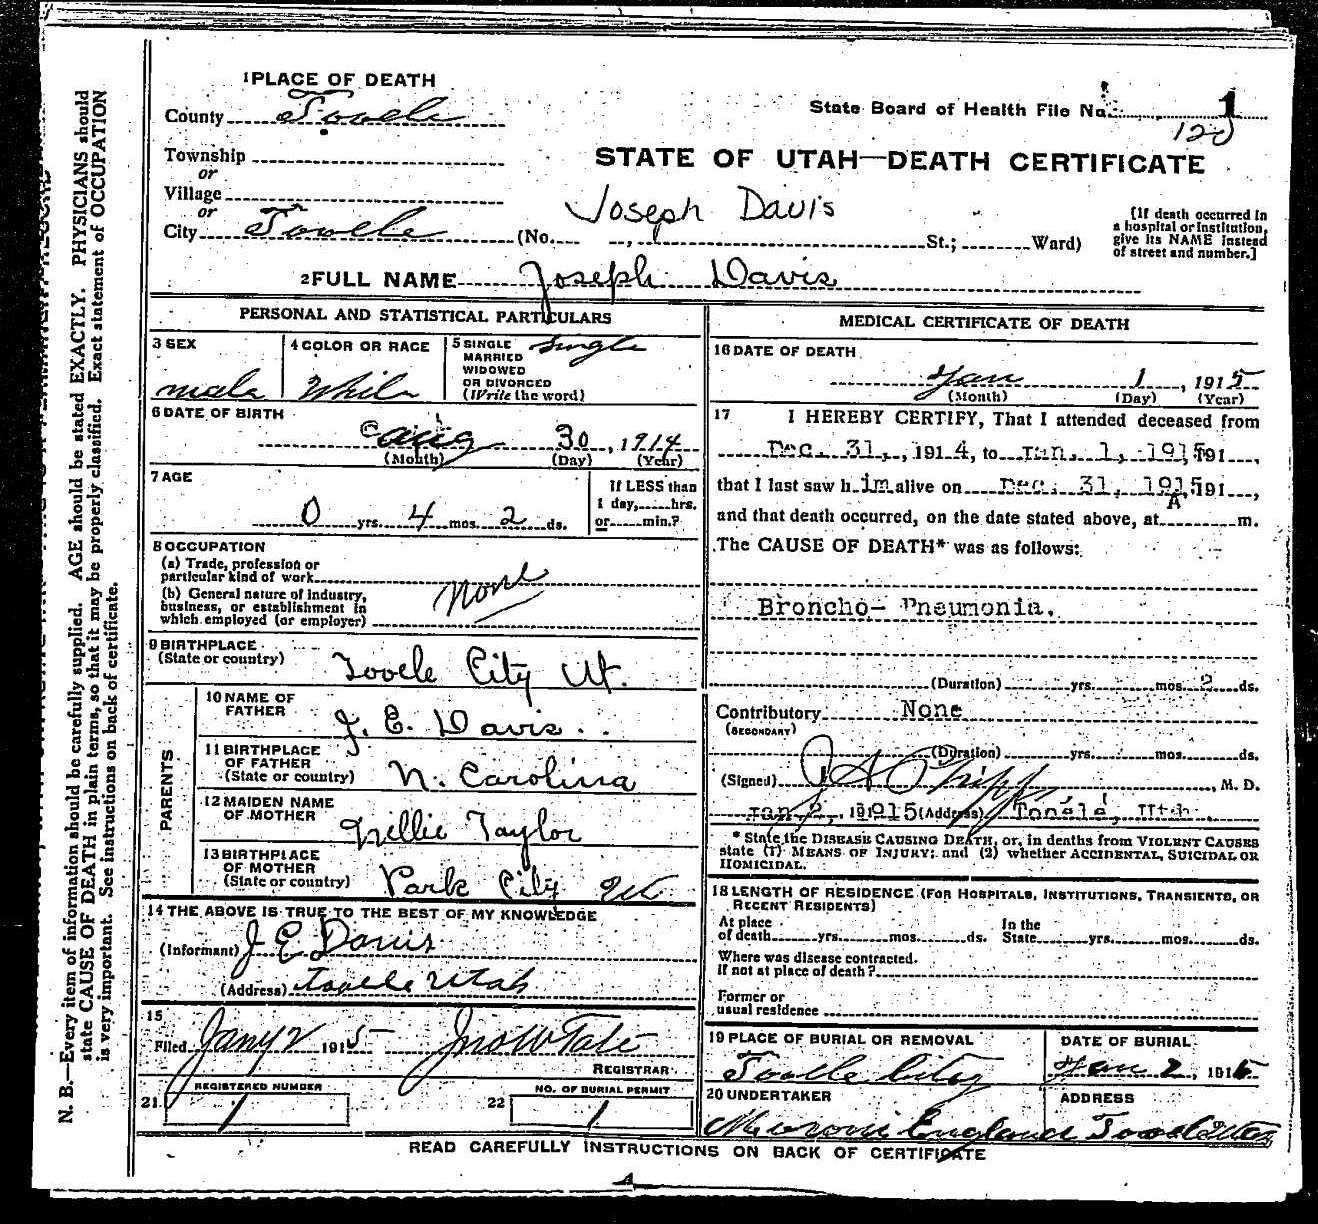 1 PLACE OF DEATH
County Tooele
State Board of Health File No. 1
120
Township
or
Village
or
City Tooele (No. , St.; Ward)
STATE OF UTAH—DEATH CERTIFICATE
Joseph Davis
[If death occurred in
a hospital or institution,
give its NAME instead
of street and number.]
2 FULL NAME Joseph Davis
PERSONAL AND STATISTICAL PARTICULARS
3 SEX
male
4 COLOR OR RACE
White
5 SINGLE
MARRIED
WIDOWED
OR DIVORCED
(Write the word)
Single
6 DATE OF BIRTH
Aug 30, 1914
(Month) (Day) (Year)
7 AGE
0 yrs. 4 mos. 2 ds.
If LESS than
1 day, hrs.
or min.?
8 OCCUPATION
(a) Trade, profession or
particular kind of work
(b) General nature of industry,
business, or establishment in
which employed (or employer)
None
9 BIRTHPLACE
(State or country) Tooele City Ut.
PARENTS
10 NAME OF
FATHER J. E. Davis
11 BIRTHPLACE
OF FATHER
(State or country) N. Carolina
12 MAIDEN NAME
OF MOTHER Nellie Taylor
13 BIRTHPLACE
OF MOTHER
(State or country) Park City Ut
14 THE ABOVE IS TRUE TO THE BEST OF MY KNOWLEDGE
(Informant) J E Davis
(Address) Tooele Utah
15
Filed Jany 2 1915 Jno W Tate
REGISTRAR
REGISTERED NUMBER
21 1
NO. OF BURIAL PERMIT
22 1
MEDICAL CERTIFICATE OF DEATH
16 DATE OF DEATH
Jan 1, 1915
(Month) (Day) (Year)
17 I HEREBY CERTIFY, That I attended deceased from
Dec. 31, , 1914, to Jan. 1, 1915, 191 ,
that I last saw him alive on Dec. 31, 1915, 191 ,
and that death occurred, on the date stated above, at A m.
The CAUSE OF DEATH* was as follows:
Broncho- Pneumonia.
(Duration) yrs. mos. 2 ds.
Contributory None
(SECONDARY)
(Duration) yrs. mos. ds.
(Signed) , M. D.
Jan. 2, 191915 (Address) Tooele, Utah.
* State the DISEASE CAUSING DEATH, or, in deaths from VIOLENT CAUSES
state (1) MEANS OF INJURY; and (2) whether ACCIDENTAL, SUICIDAL OR
HOMICIDAL.
18 LENGTH OF RESIDENCE (FOR HOSPITALS, INSTITUTIONS, TRANSIENTS, OR
RECENT RESIDENTS)
At place
of death yrs. mos. ds.
In the
State yrs. mos. ds.
Where was disease contracted.
if not at place of death?
Former or
usual residence
19 PLACE OF BURIAL OR REMOVAL
Tooele City
DATE OF BURIAL
Jan 2, 1915
20 UNDERTAKER
Moroni England
ADDRESS
Tooele Utah
READ CAREFULLY INSTRUCTIONS ON BACK OF CERTIFICATE
N. B.—Every item of information should be carefully supplied. AGE should be stated EXACTLY. PHYSICIANS should
state CAUSE OF DEATH in plain terms, so that it may be properly classified. Exact statement of OCCUPATION
is very important. See instructions on back of certificate.